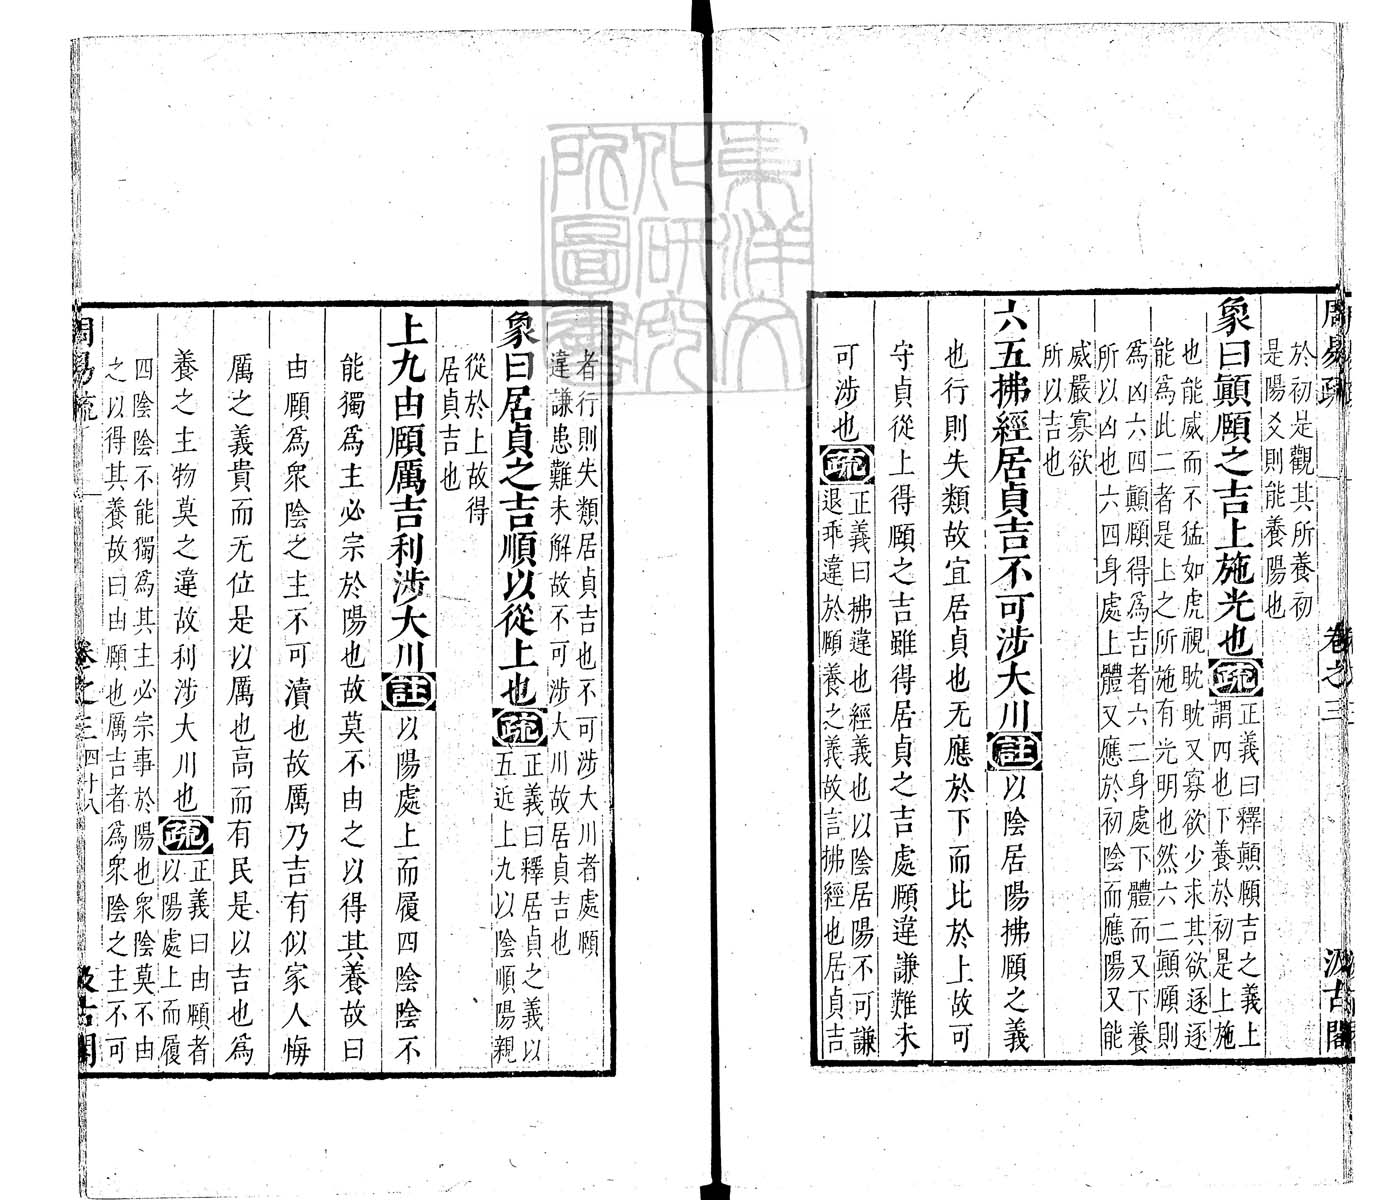 周易疏 卷之三 汲古閣
於初是觀其所養初
是陽爻則能養陽也
象曰顚頤之吉上施光也疏
正義曰釋顚頤吉之義上
謂四也下養於初是上施
也能威而不猛如虎視眈眈又寡欲少求其欲逐逐
能為此二者是上之所施有光明也然六二顚頤則
為凶六四顚頤得為吉者六二身處下體而又下養
所以凶也六四身處上體又應於初陰而應陽又能
威嚴寡欲
所以吉也
六五拂經居貞吉不可涉大川註以陰居陽拂頤之義
也行則失類故宜居貞也无應於下而比於上故可
守貞從上得頤之吉雖得居貞之吉處頤違謙難未
可涉也疏
正義曰拂違也經義也以陰居陽不可謙
退乖違於頤養之義故言拂經也居貞吉
者行則失類居貞吉也不可涉大川者處頤
違謙患難未解故不可涉大川故居貞吉也
象曰居貞之吉順以從上也疏
正義曰釋居貞之義以
五近上九以陰順陽親
從於上故得
居貞吉也
上九由頤厲吉利涉大川註以陽處上而履四陰陰不
能獨為主必宗於陽也故莫不由之以得其養故曰
由頤為衆陰之主不可瀆也故厲乃吉有似家人悔
厲之義貴而无位是以厲也高而有民是以吉也為
養之主物莫之違故利涉大川也疏
正義曰由頤者
以陽處上而履
四陰陰不能獨為其主必宗事於陽也衆陰莫不由
之以得其養故曰由頤也厲吉者為衆陰之主不可
周易疏 卷之三 四十八 汲古閣
東洋文
化研究
所圖書